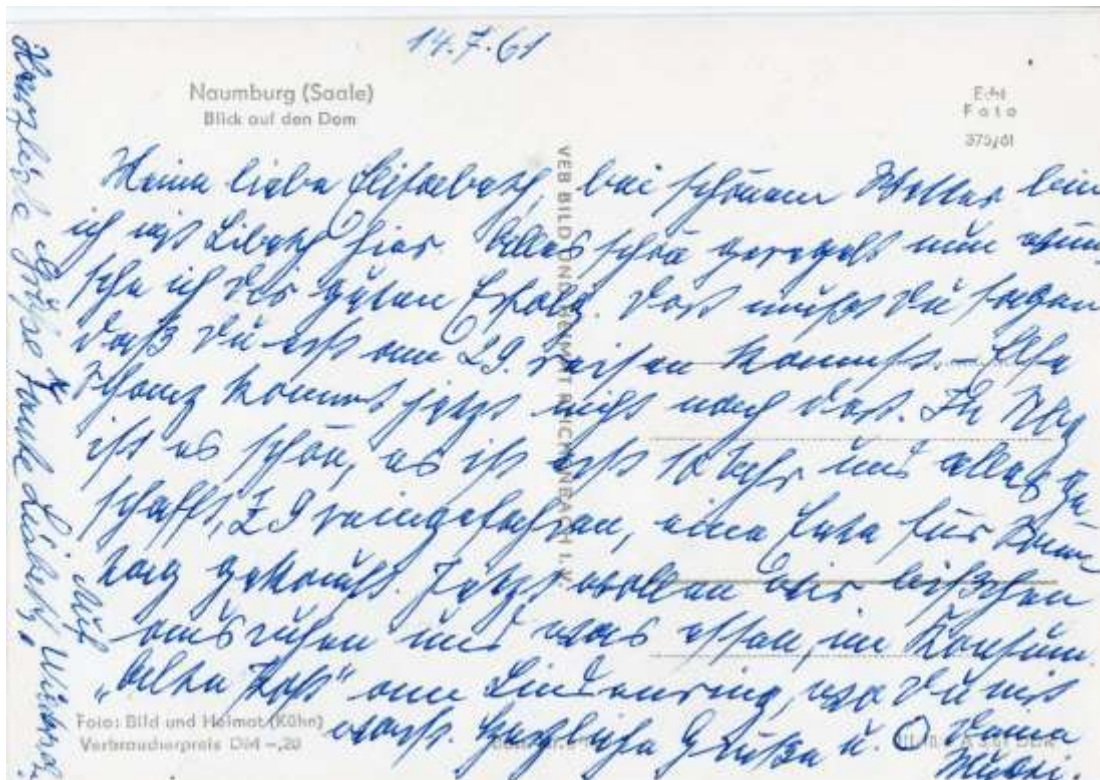 14.7.61
Naumburg (Saale)
Blick auf den Dom
Echt
Foto
375/61
VEB BILD UND HEIMAT REICHENBACH I. V.
Meine liebe Elisabeth, bei schönem Wetter bin
ich mit Lisbeth hier. Alles schön geregelt nun wün
sche ich dir guten Erfolg. Dort mußt du sagen
daß du erst am 29. reisen kannst. – Else
kommt jetzt nicht nach dort. In Nbg
ist es schön, es ist erst 10 Uhr und alles ge
schafft, reingefahren, eine Ente für Sonn
tag gekauft. Jetzt wollen wir bißchen
ausruhen und was essen, im Konsum.
„Alte Post" am Lindenring, wo du mit
warst. Herzliche Grüße u. Deine
Mutti.
Herzliche Grüße Tante Lisbeth,
Foto: Bild und Heimat (Kühn)
Verbraucherpreis DM –,20